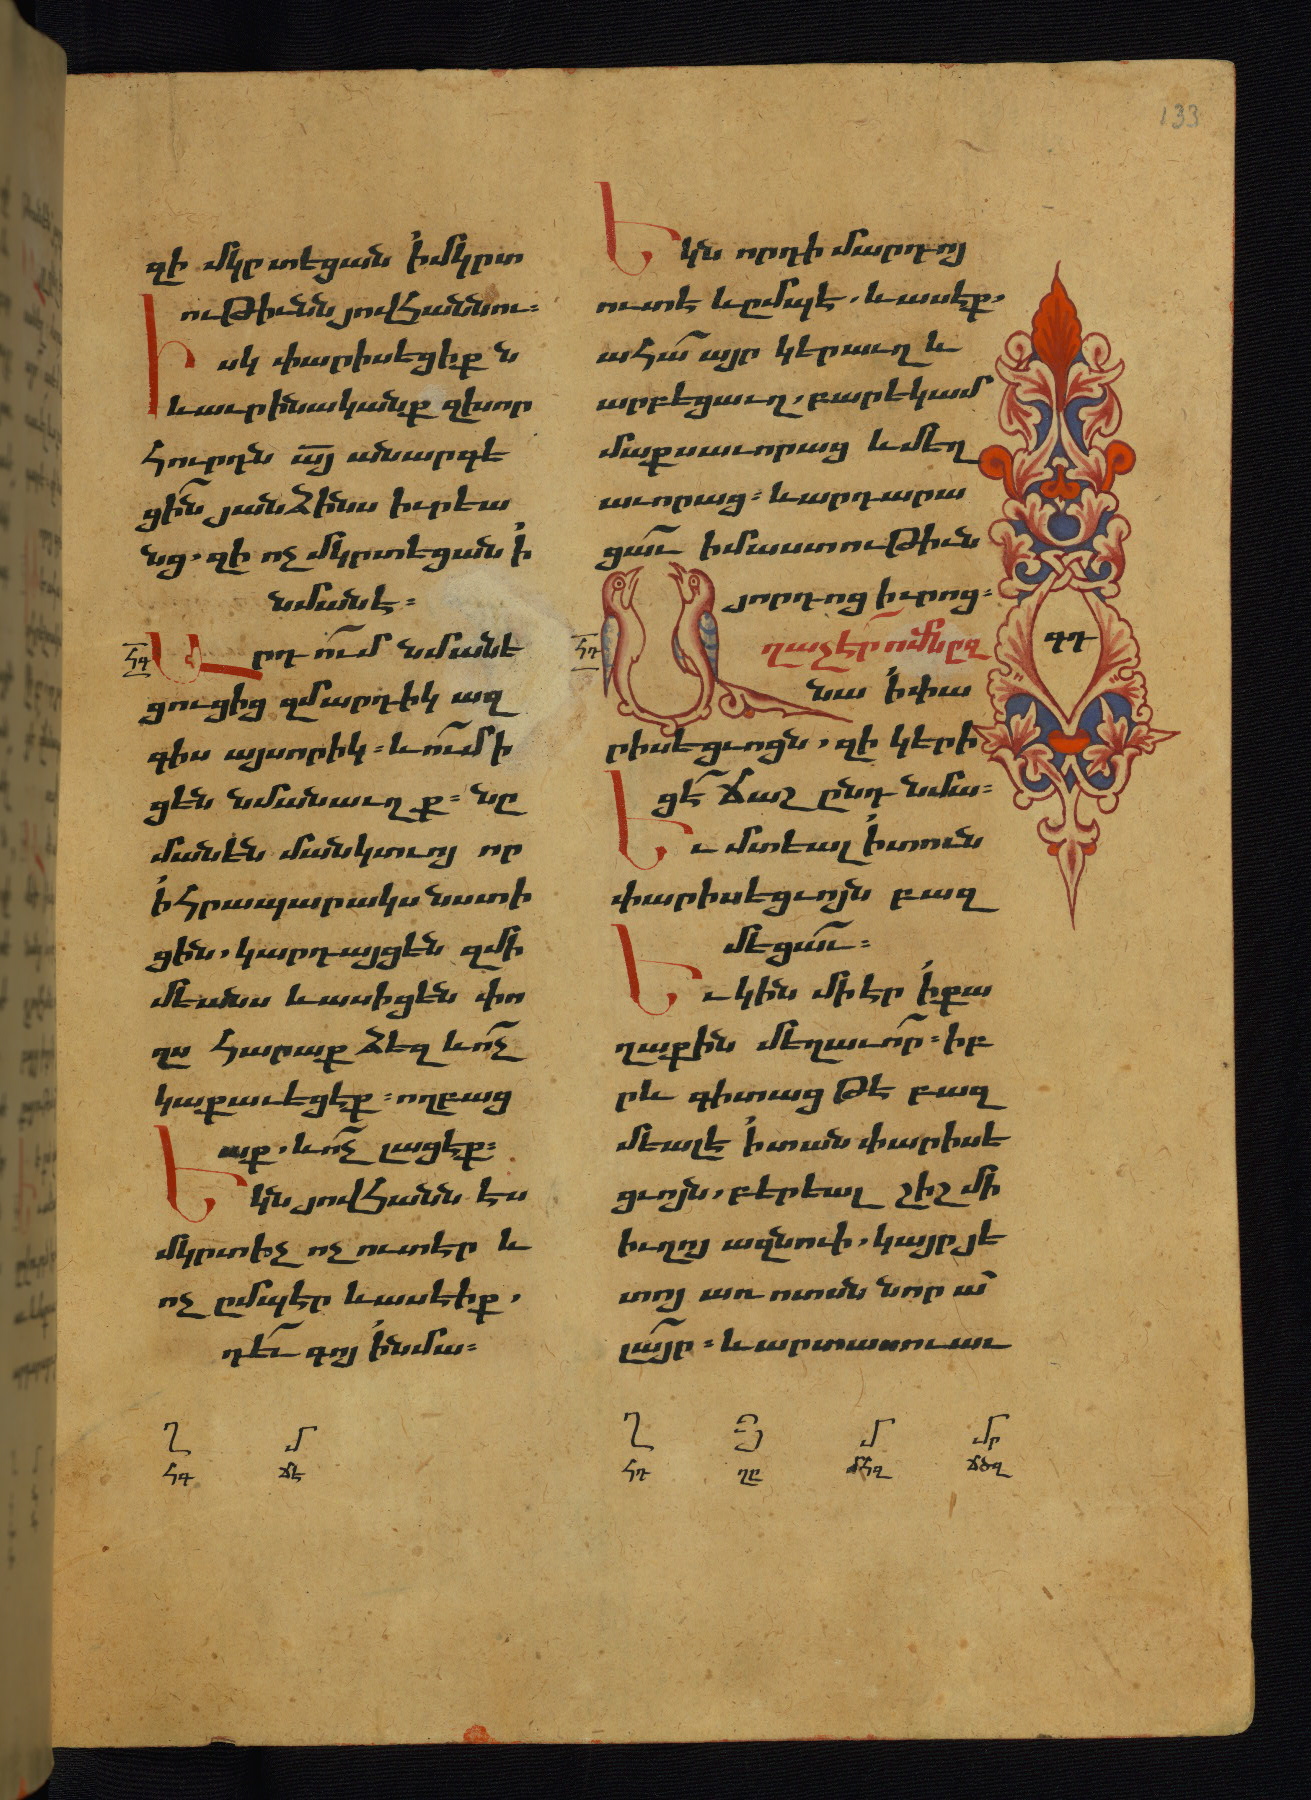 133
զի մկրտեցան ի մկրտ
ութիւնն յովհաննու։
Իսկ փարիսեցիք ն
և աւրինականք զխոր
հուրդն ա͞յ անարգե
ցին յանձինս իւրեա
նց, զի ոչ մկրտեցան ի
նմանէ։
ՀԳ
Արդ ում նմանե
ցուցից զմարդիկ ազ
գիս այսորիկ։ և ում ի
ցեն նմանաւղք։ նը
մանեն մանկտւոյ որ
ի հրապարակս նստի
ցին, կարդայցեն զմի
մեանս և ասիցեն փո
ղս հարաք ձեզ և ոչ
կաքաւեցէք։ ողբաց
աք, և ոչ լացէք։
Եկն յովհաննէս
մկրտիչ ոչ ուտէր և
ոչ ըմպէր և ասեիք,
դեւ գոյ ի նմա։
Ղ Մ
ՀԳ ՃԷ
Եկն որդի մարդոյ
ուտէ և ըմպէ, և ասէք,
ահա այր կերաւղ և
արբեցաւղ, բարեկամ
մաքսաւորաց և մեղ
աւորաց։ և արդարա
ցաւ իմաստութիւն
յորդոց իւրոց։
ՀԴ
Աղաչէր ո՟մն ըզ
նա ի փա
րիսեցւոցն, զի կերի
ցէ ճաշ ընդ նմա։
Եւ մտեալ ի տունն
փարիսեցւոյն բազ
մեցաւ։
Եւ կին մի էր ի քա
ղաքին մեղաւոր։ իբ
րև գիտաց թէ բազ
մեալ է ի տան փարիսե
ցւոյն, բերեալ շիշ մի
իւղոյ ազնուի, կայր յե
տոյ առ ոտսն նորա
լայր։ և արտասուաւ
ԳԴ
Ղ Յ Մ Մր
ՀԴ ՂԸ ՄՀԶ ՃԾԶ